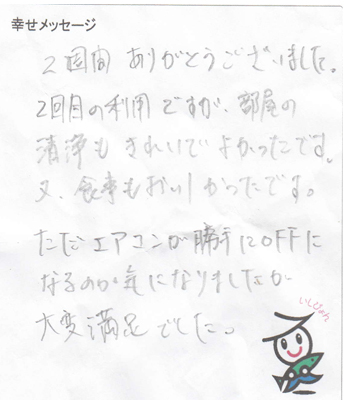 幸せメッセージ
2週間 ありがとうございました。
2回目の利用ですが、部屋の
清浄も きれいで よかったです。
又、食事もおいしかったです。
ただエアコンが勝手にOFFに
なるのが気になりましたが
大変満足でした。